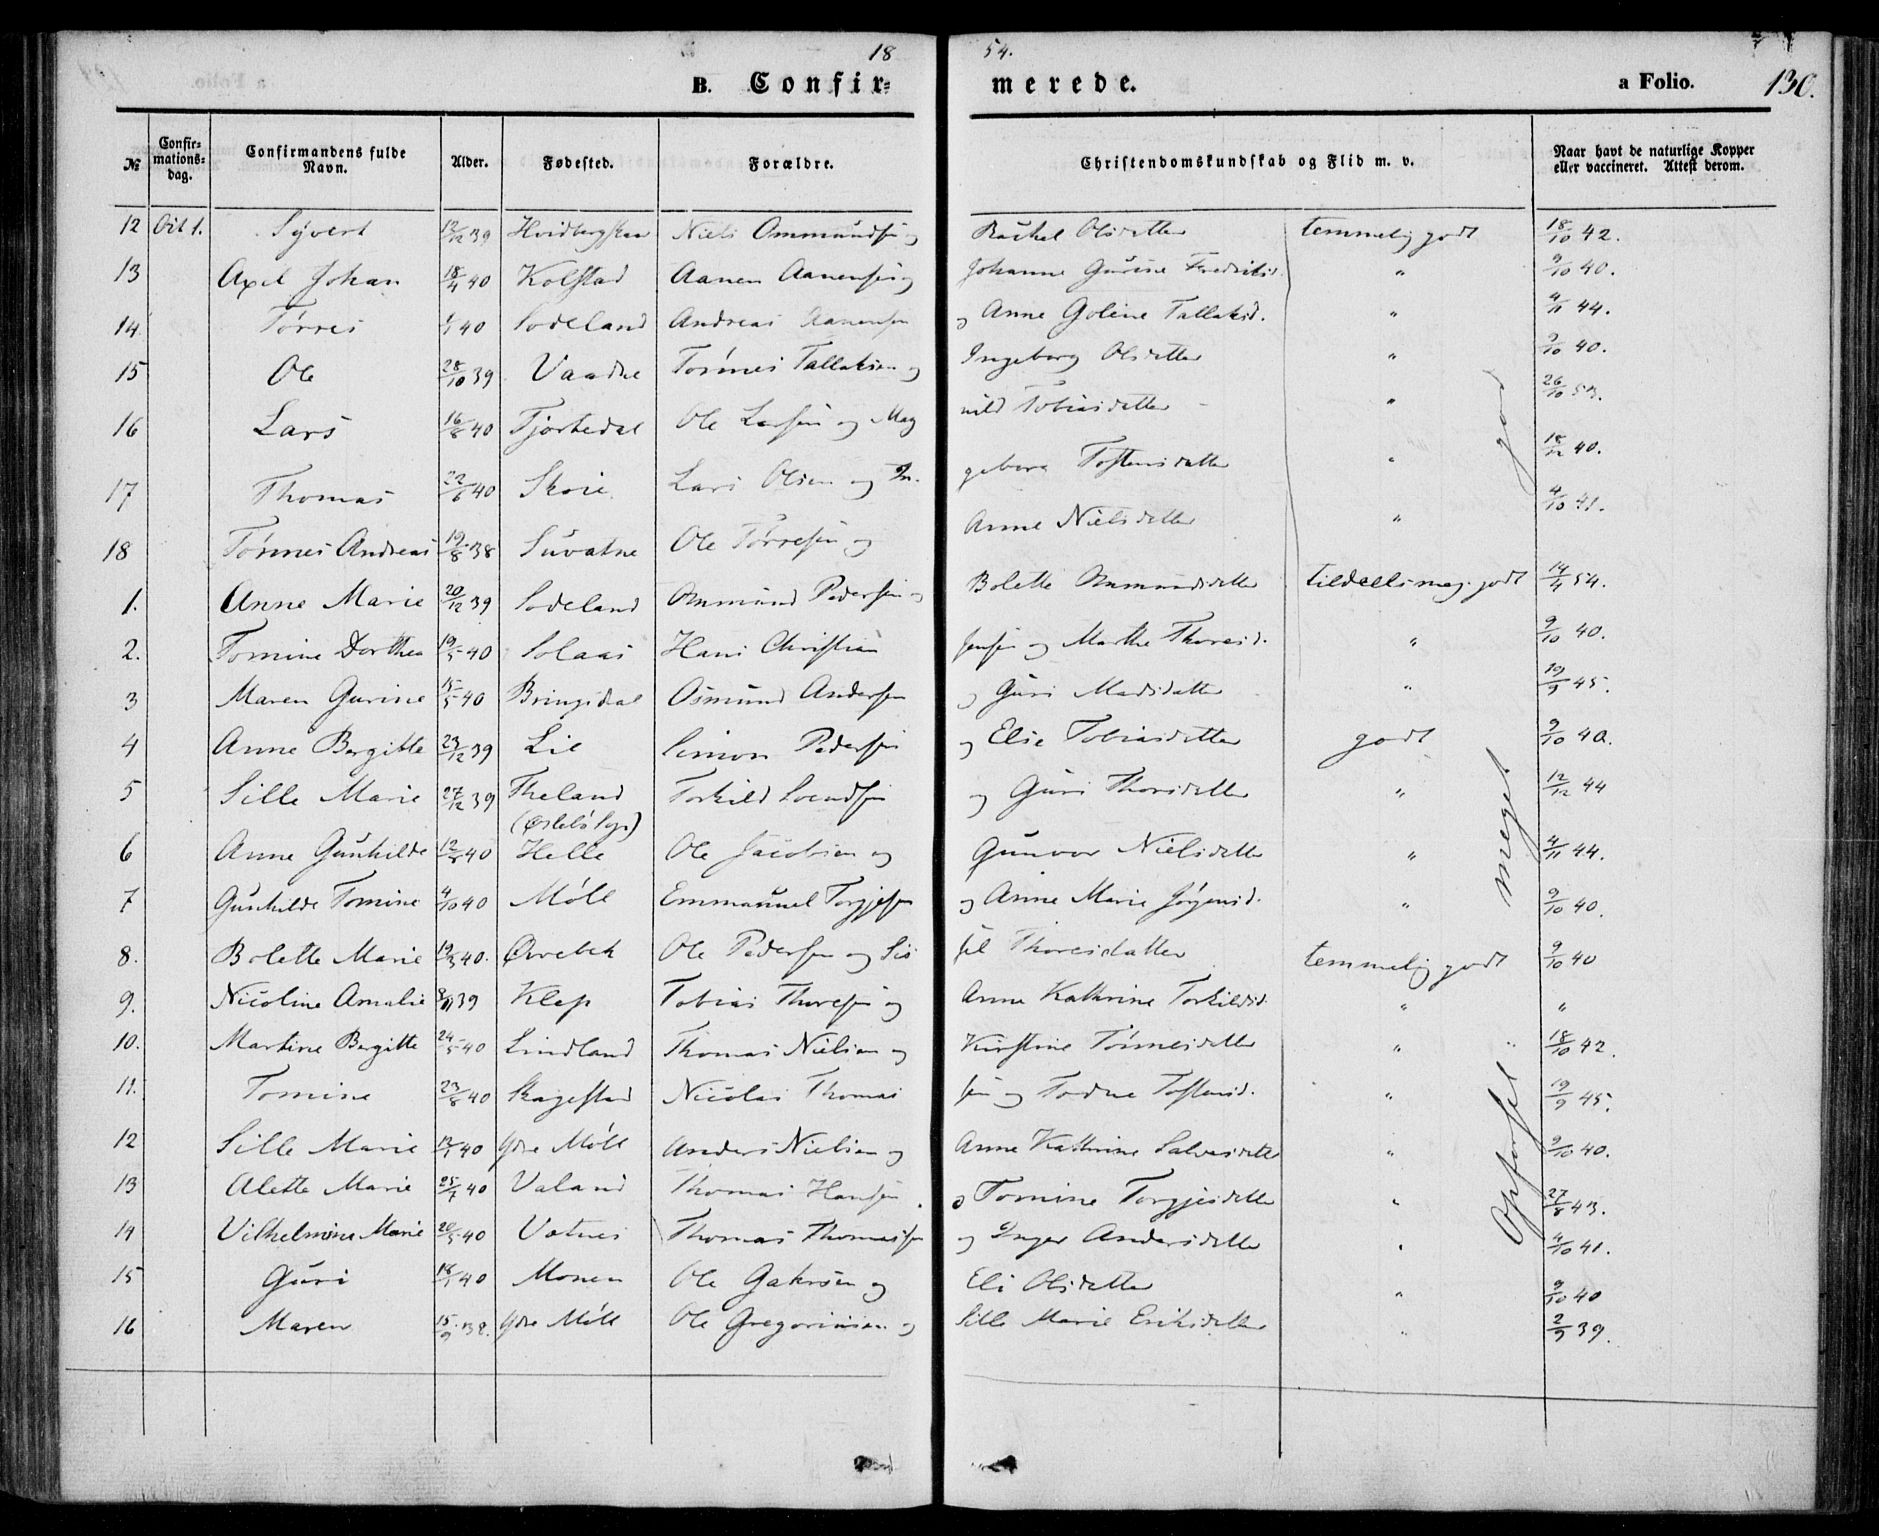 18 54.
B. Confir= merede. a Folio. 130.
№ Confir=mations=dag. Confirmandens fulde Navn. Alder. Fødested. Forældre. Christendomskundskab og Flid m. v. Naar havt de naturlige Kopper eller vaccineret. Attest derom.
12 Oct 1. Syvert 12/12 39 Niels Ommundsen og Rachel Olsdatter temmelig godt 18/10 42.
13 Axel Johan 18/4 40 Kolstad Aanen Aanensen og Johanne Gurine Fredriksd. " 9/10 40.
14. Tørres 40 Sodeland Andreas Aanensen og Anne Goline Tallaksd. " 4/11 44.
15 Ole 28/10 39 Vaadne Tønnes Tallaksen og Ingeborg Olsdatter " 9/10 40.
16 Lars 16/8 40 Tjortedal Ole Larsen og Magnild Tobiasdatter " 26/10 53.
17 Thomas 22/6 40 Skoie Lars Olsen og Ingeborg Tostensdatter " 18/12 40.
18 Tønnes Andreas 19/8 38 Suvatne Ole Tørresen og Anne Nielsdatter " 4/10 41.
1. Anne Marie 20/12 39 Sodeland Ommund Pedersen og Bolette Ommundsdatter tildeels meg. godt 14/4 54.
2. Tomine Dorthea 19/5 40 Solaas Hans Christian Jensen og Marthe Thoresd. " 9/10 40.
3 Maren Gurine 15/5 40 Bringsdal Osmund Andersen og Guri Madsdatter " 19/9 45.
4 Anne Bergitte 23/12 39 Lie Simon Pedersen og Elie Tobiasdatter godt 9/10 40.
5 Sille Marie 27/12 39 Theland Torkild Svendsen og Guri Thorsdatter " 12/12 44
(Øslebø Sogn)
6 Anne Gunhilde 40 Helle Ole Jacobsen og Gunvor Nielsdatter " 4/11 44.
7 Gunhilde Tomine 4/10 40 Møll Emmanuel Torgjesen og Anne Marie Jørgensd. " 9/10 40.
8. Bolette Marie 19/3 40. Øvrebek Ole Pedersen og Sissel Thoresdatter temmelig godt 9/10 40
9. Nicoline Amalie 39 Klep Tobias Thoresen og Anne Kathrine Torkildsd. " "
10. Martine Bergitte 24/5 40 Lindland Thomas Nielsen og Kirstine Tønnesdatter " 18/10 42.
11. Tomine 23/8 40 Skagestad Nicolai Thomassen og Todne Tostensd. " 19/9 45.
12 Sille Marie 40 Ydre Møll Anders Nielsen og Anne Kathrine Salvesdatter " 9/10 40.
13 Alette Marie 25/7 40 Valand Thomas Hansen og Tomine Torgjesdatter " 27/8 43.
14 Vilhelmine Marie 20/5 40 Vatnes Thomas Thomassen og Inger Andersdatter " 4/10 41.
15 Guri 40 Monen Ole Gabrsen og Eli Olsdatter " 9/10 40
16 Maren 15/9 38. Ydre Møll Ole Gregoriusen og Sille Marie Eriksdatter " 2/9 39.
Opførsel meget god